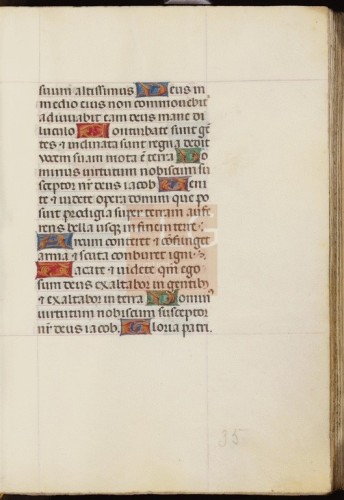 suum altissimus Deus in
medio eius non commovebit᷑
adiuvabit eam deus mane di
luculo Conturbate sunt gẽ
tes & inclinata sunt regna dedit
vocem suam mota ẽ terra Do
minus virtutum nobiscum su
sceptor nr̃ deus iacob Veni
te & videte opera domini que po
suit prodigia super terram aufe
rens bella usq; in finem terre
Arcum conteret & cõfringet
arma & scuta comburet igni.
Vacate & videte qm̃ ego
sum deus exaltabor in gentib⁹
& exaltabor in terra Domin⁹
virtutum nobiscum susceptor
nr̃ deus iacob. Gloria patri.
35